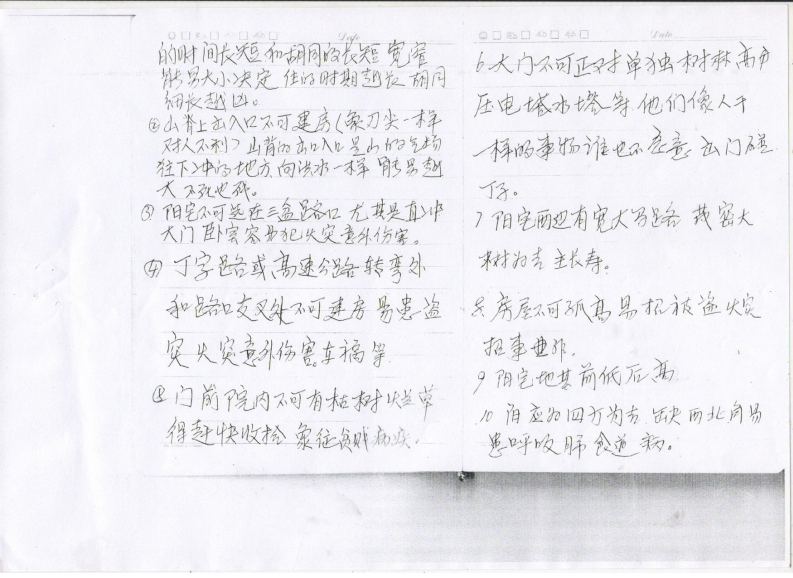 的时间长短和胡同的长短宽窄
能量大小决定 住的时期越长 胡同
细长越凶。
②山背上出入口不可建房(象刀尖一样
对人不利)山背的出口入口是山的气场
往下冲的地方 向洪水一样 能量越
大 不死也残。
③ 阳宅不可选在三岔路口 尤其是直冲
大门 卧室容易犯火灾意外伤害。
④ 丁字路或高速公路转弯外
和路口交叉处不可建房 易患盗
灾火灾意外伤害.车祸等
门前院内不可有枯树 烂草
得赶快收拾 象征贫贱病疾.
Date
6.大门不可正对单独树林高
压电塔水塔等.他们像人干
一样的事物谁也不愿意出门碰
钉子。
7 阳宅两边有宽大马路 栽密大
树为吉 主长寿。
8.房屋不可孤高易招被盗 火灾
招事
9 阳宅地基前低后高
10 阳宅为四方为吉 缺西北角易
患呼吸肺食道病。